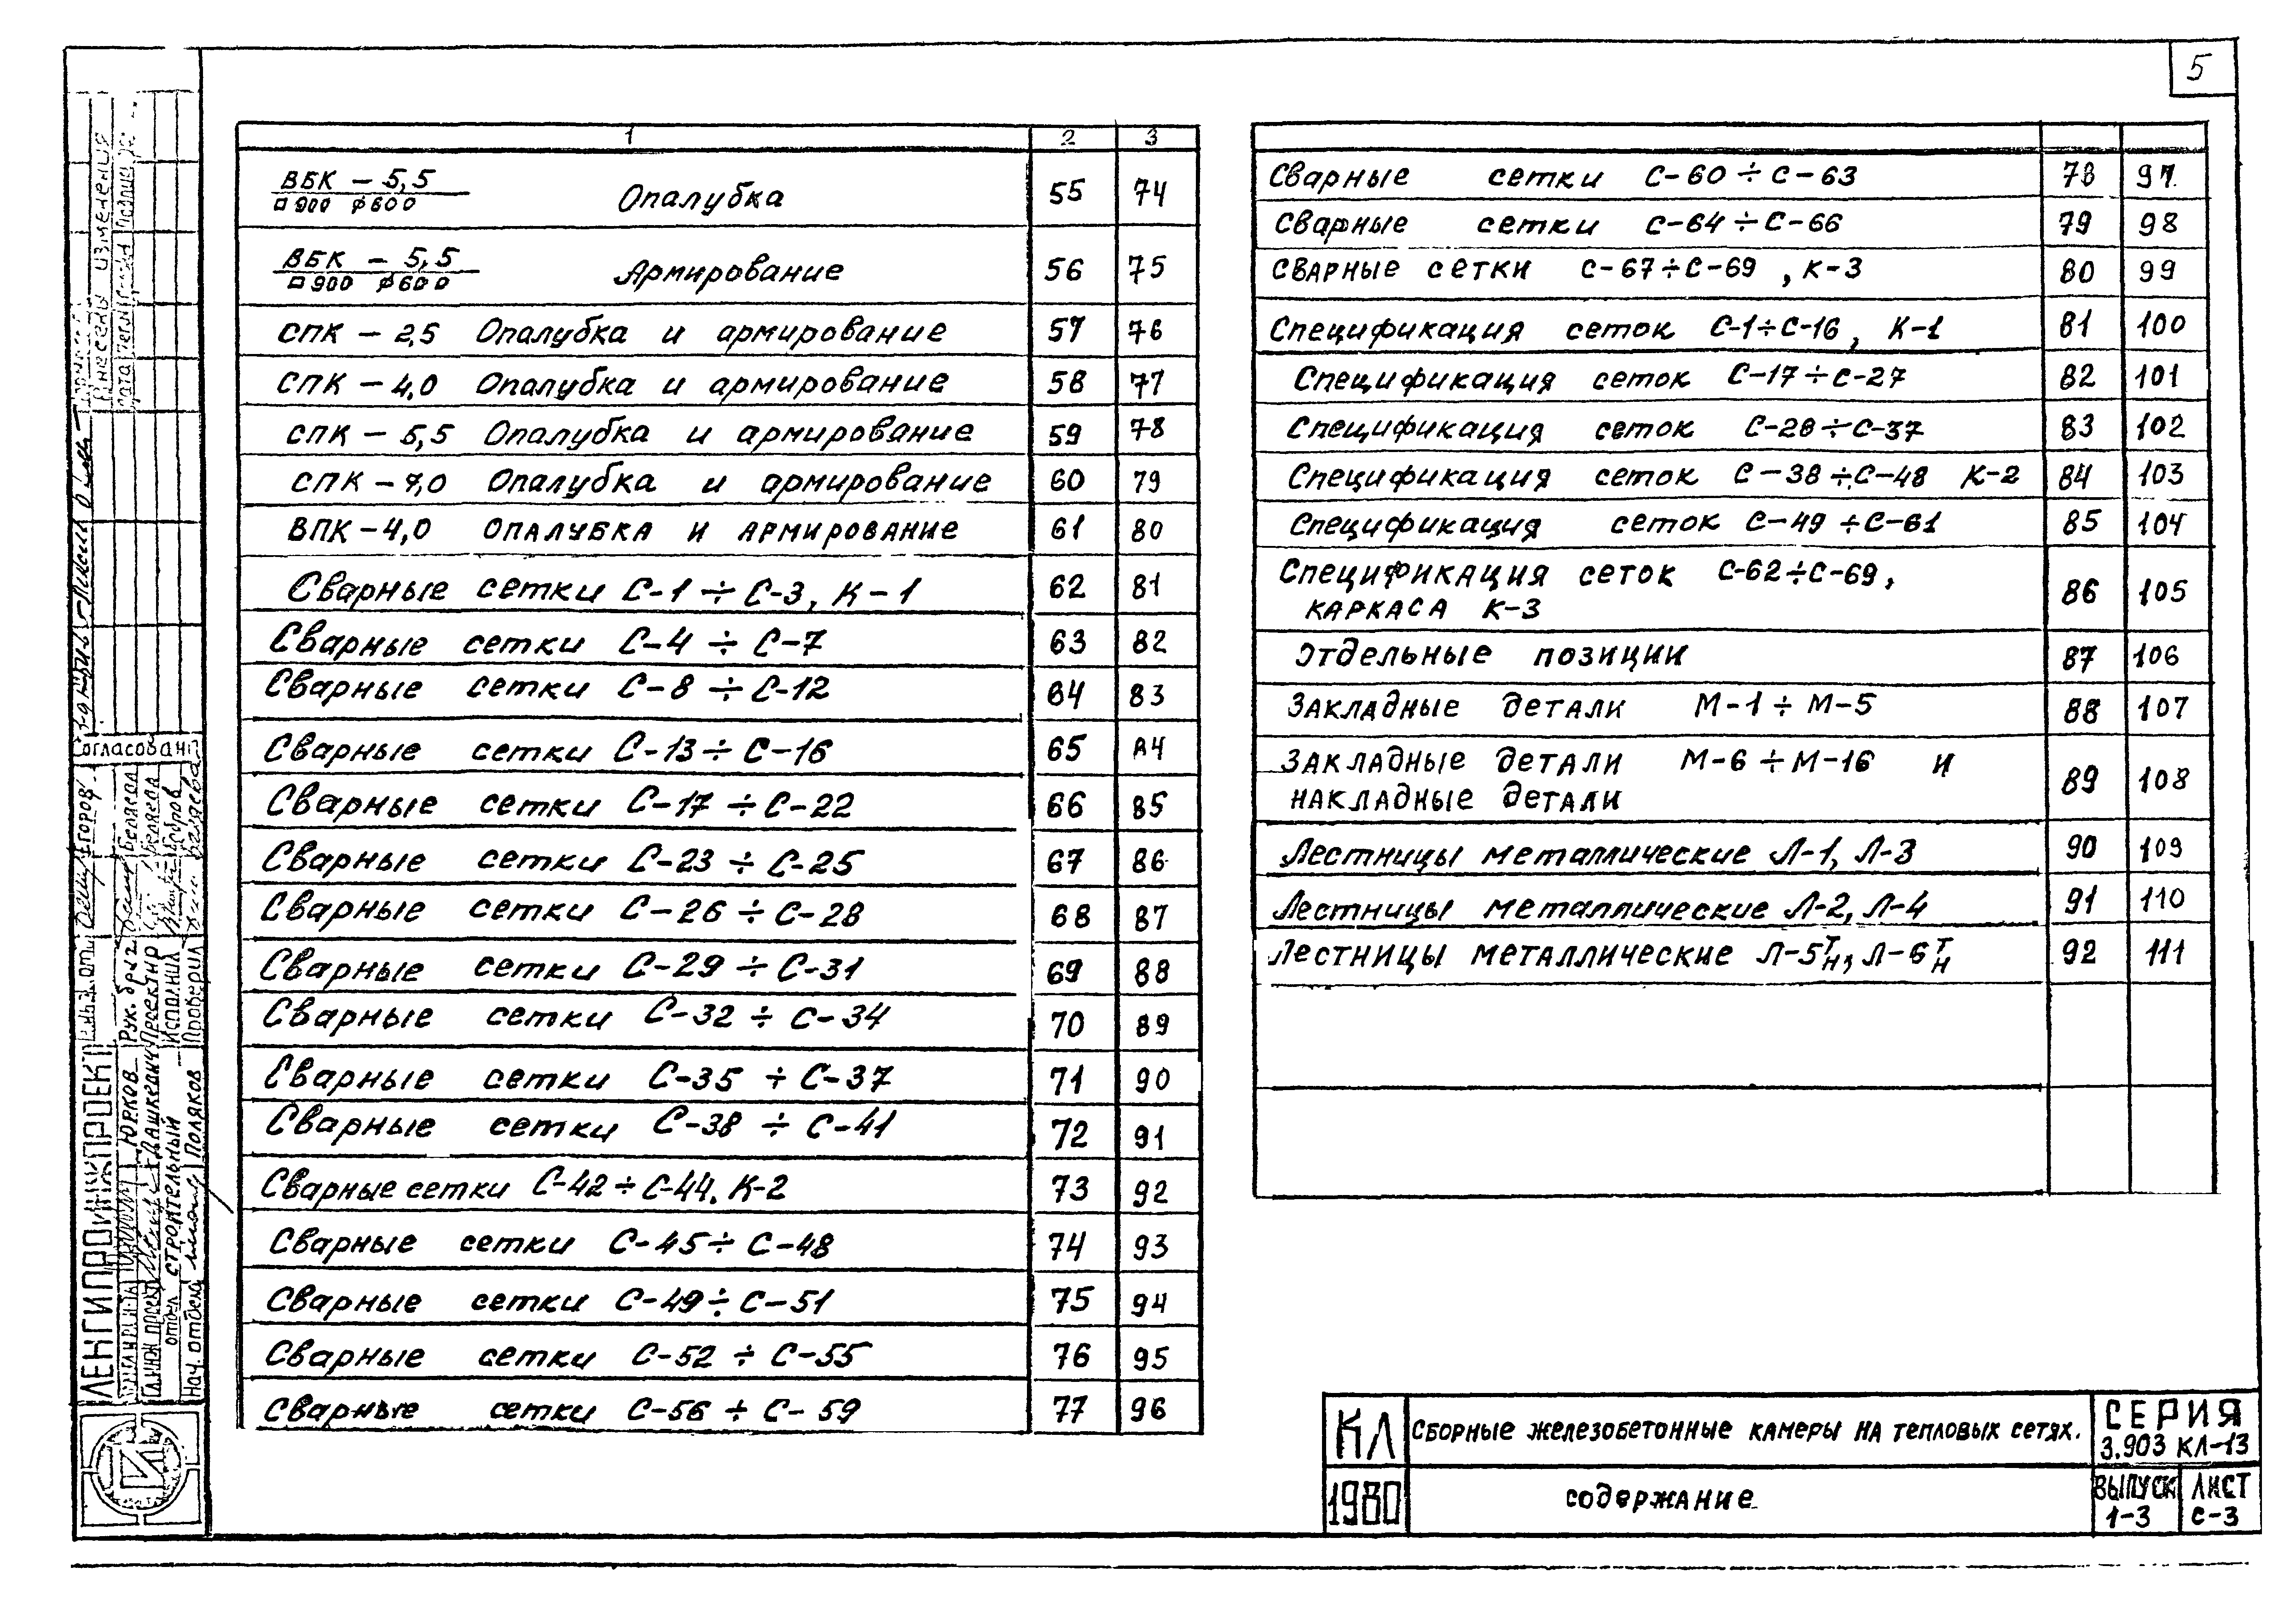 5
1 2 3
ВБК – 5,5
□ 900 ϕ 600 Опалубка 55 74
ВБК – 5,5
□ 900 ϕ 600 Армирование 56 75
СПК – 2,5 Опалубка и армирование 57 76
СПК – 4,0 Опалубка и армирование 58 77
СПК – 5,5 Опалубка и армирование 59 78
СПК – 7,0 Опалубка и армирование 60 79
ВПК – 4,0 ОПАЛУБКА И АРМИРОВАНИЕ 61 80
Сварные сетки С-1 ÷ С-3, К-1 62 81
Сварные сетки С-4 ÷ С-7 63 82
Сварные сетки С-8 ÷ С-12 64 83
Сварные сетки С-13 ÷ С-16 65 84
Сварные сетки С-17 ÷ С-22 66 85
Сварные сетки С-23 ÷ С-25 67 86
Сварные сетки С-26 ÷ С-28 68 87
Сварные сетки С-29 ÷ С-31 69 88
Сварные сетки С-32 ÷ С-34 70 89
Сварные сетки С-35 ÷ С-37 71 90
Сварные сетки С-38 ÷ С-41 72 91
Сварные сетки С-42 ÷ С-44, К-2 73 92
Сварные сетки С-45 ÷ С-48 74 93
Сварные сетки С-49 ÷ С-51 75 94
Сварные сетки С-52 ÷ С-55 76 95
Сварные сетки С-56 ÷ С-59 77 96
Сварные сетки С-60 ÷ С-63 78 97
Сварные сетки С-64 ÷ С-66 79 98
СВАРНЫЕ СЕТКИ С-67 ÷ С-69, К-3 80 99
Спецификация сеток С-1 ÷ С-16, К-1 81 100
Спецификация сеток С-17 ÷ С-27 82 101
Спецификация сеток С-28 ÷ С-37 83 102
Спецификация сеток С-38 ÷ С-48 К-2 84 103
Спецификация сеток С-49 ÷ С-61 85 104
СПЕЦИФИКАЦИЯ СЕТОК С-62 ÷ С-69,
КАРКАСА К-3 86 105
ОТДЕЛЬНЫЕ ПОЗИЦИИ 87 106
ЗАКЛАДНЫЕ ДЕТАЛИ М-1 ÷ М-5 88 107
ЗАКЛАДНЫЕ ДЕТАЛИ М-6 ÷ М-16 И
НАКЛАДНЫЕ ДЕТАЛИ 89 108
Лестницы металлические Л-1, Л-3 90 109
Лестницы металлические Л-2, Л-4 91 110
ЛЕСТНИЦЫ МЕТАЛЛИЧЕСКИЕ Л-5 Т/Н, Л-6 Т/Н 92 111
КЛ СБОРНЫЕ ЖЕЛЕЗОБЕТОННЫЕ КАМЕРЫ НА ТЕПЛОВЫХ СЕТЯХ. СЕРИЯ
3.903 КЛ-13
1980 СОДЕРЖАНИЕ ВЫПУСК ЛИСТ
1-3 С-3
Согласовано
ЛЕНГИПРОИНЖПРОЕКТ
Рук. бриг.
Исполнил
Проверил
Юрков
СТРОИТЕЛЬНЫЙ
Нач. отдела Поляков